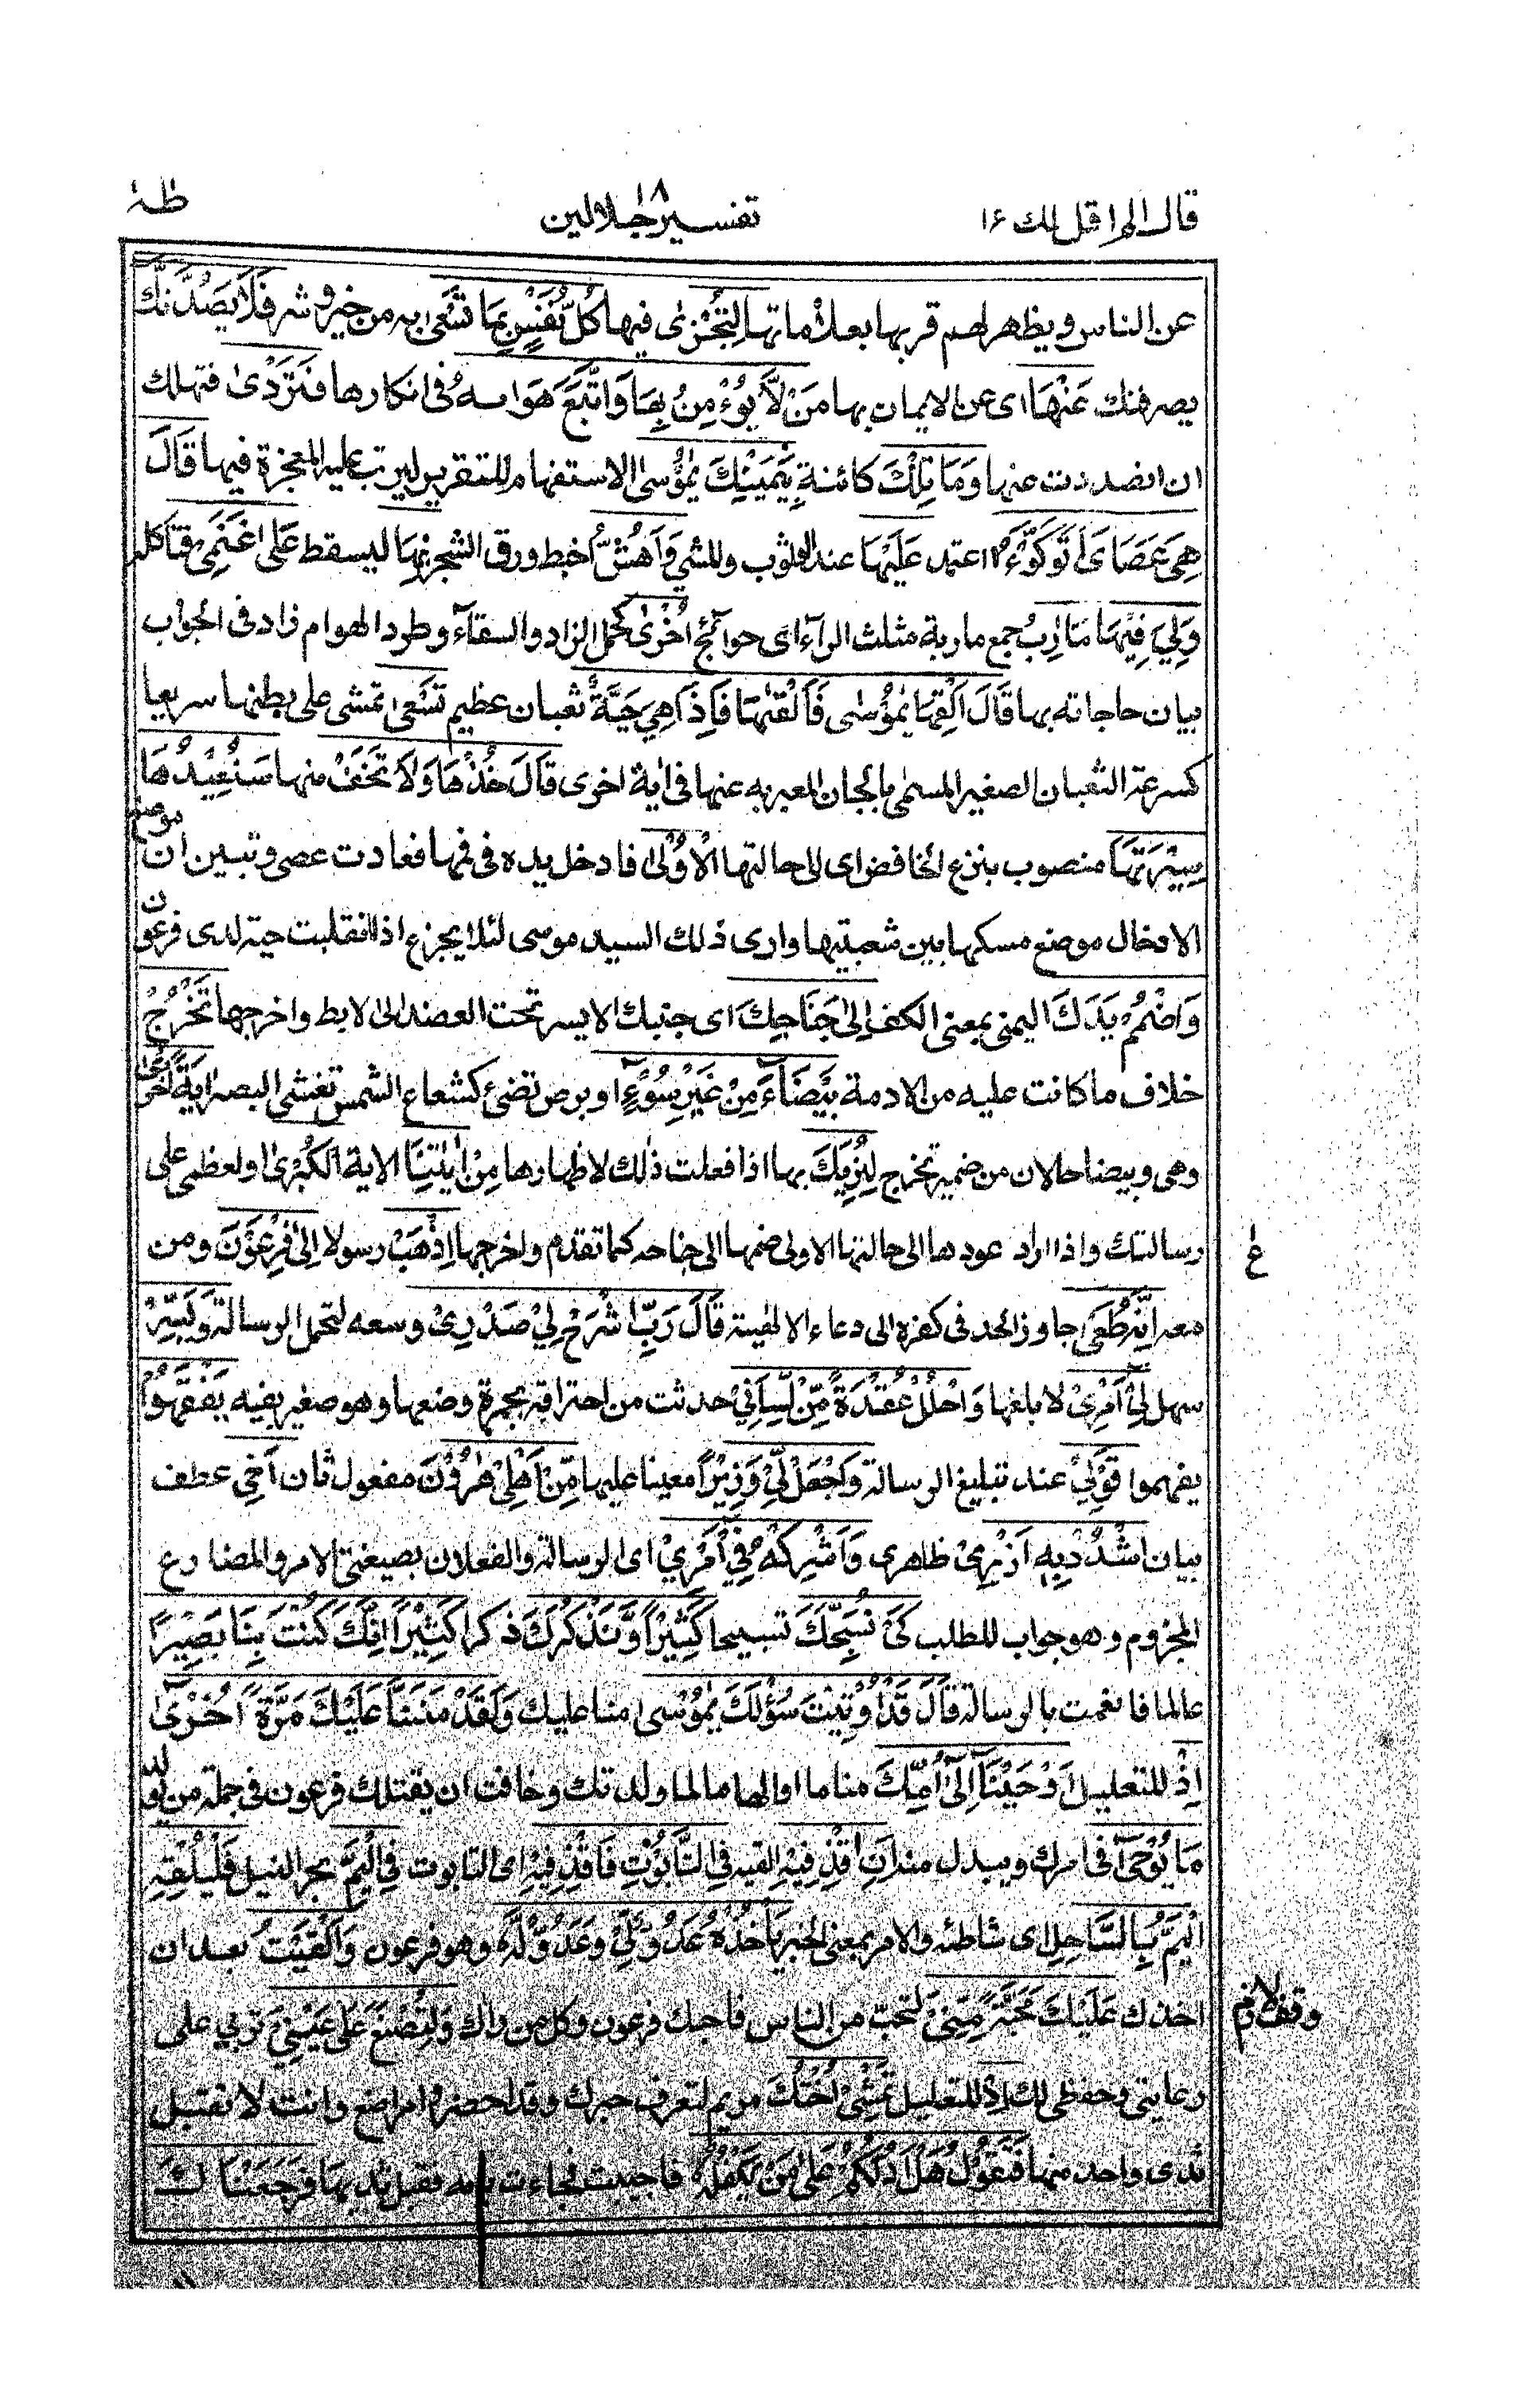 قال الم اقل لك ۱۶
تفسير جلالين
۱۸
طٰهٰ
عن الناس ويظهر لهم قربها بعلاماتها لِتُجْزٰى فيها كُلُّ نَفْسٍ بِمَا تَسْعٰى به من خير وشر فَلَا يَصُدَّنَّكَ
يصرفنك عَنْهَا اى عن الايمان بها مَنْ لَّا يُؤْمِنُ بِهَا وَاتَّبَعَ هَوَاىهُ فى انكارها فَتَرْدٰى فتهلك
ان انصددت عنها وَمَا تِلْكَ كائنة بِيَمِيْنِكَ يٰمُوْسٰى الاستفهام للتقرير ليرتب عليه المعجزة فيها قَالَ
هِيَ عَصَايَ اَتَوَكَّؤُا اعتمد عَلَيْهَا عند الوثوب والمشي وَاَهُشُّ اخبط ورق الشجر بِهَا ليسقط عَلٰى غَنَمِيْ فتاكله
وَلِيَ فِيْهَا مَاٰرِبُ جمع ماربة مثلث الراء اى حوائج اُخْرٰى كحمل الزاد والسقاء وطرد الهوام زاد فى الجواب
بيان حاجاته بها قَالَ اَلْقِهَا يٰمُوْسٰى فَاَلْقٰىهَا فَاِذَا هِيَ حَيَّةٌ ثعبان عظيم تَسْعٰى تمشى على بطنها سريعا
كسرعة الثعبان الصغير المسمى بالجان المعبر به عنها فى اية اخرى قَالَ خُذْهَا وَلَا تَخَفْ منها سَنُعِيْدُهَا
سِيْرَتَهَا منصوب بنزع الخافض اى الى حالتها الْاُوْلٰى فادخل يده فى فمها فعادت عصى وتبين ان موضع
الادخال موضع مسكها بين شعبتيها وارى ذلك السيد موسى لئلا يجزع اذا انقلبت حية لدى فرعون
وَاضْمُمْ يَدَكَ اليمنى بمعنى الكف اِلٰى جَنَاحِكَ اى جنبك الايسر تحت العضد الى الابط واخرجها تَخْرُجْ
خلاف ما كانت عليه من الادمة بَيْضَاءَ مِنْ غَيْرِ سُوْءٍ اى برص تضئ كشعاع الشمس تغشى البصر اٰيَةً اُخْرٰى
وهى وبيضا حالان من ضمير تخرج لِنُرِيَكَ بها اذا فعلت ذلك لاظهارها مِنْ اٰيٰتِنَا الاية الْكُبْرٰى اى العظمى على
رسالتك واذا اراد عودها الى حالتها الاولى ضمها الى جناحه كما تقدم واخرجها اِذْهَبْ رسولا اِلٰى فِرْعَوْنَ ومن
معه اِنَّهٗ طَغٰى جاوز الحد فى كفره الى دعاء الالهية قَالَ رَبِّ اشْرَحْ لِيْ صَدْرِيْ وسعه لتحمل الرسالة وَيَسِّرْ
سهل لِيْ اَمْرِيْ لابلغها وَاحْلُلْ عُقْدَةً مِّنْ لِّسَانِيْ حدثت من احتراقه بجمرة وضعها وهو صغير بفيه يَفْقَهُوْا
يفهموا قَوْلِيْ عند تبليغ الرسالة وَاجْعَلْ لِّيْ وَزِيْرًا معينا عليها مِّنْ اَهْلِيْ هٰرُوْنَ مفعول ثان اَخِى عطف
بيان اشْدُدْ بِهٖ اَزْرِيْ ظهرى وَاَشْرِكْهُ فِيْ اَمْرِيْ اى الرسالة والفعلان بصيغتى الامر والمضارع
المجزوم وهو جواب للطلب كَيْ نُسَبِّحَكَ تسبيحا كَثِيْرًا وَّنَذْكُرَكَ ذكرا كَثِيْرًا اِنَّكَ كُنْتَ بِنَا بَصِيْرًا
عالما فانعمت بالرسالة قَالَ قَدْ اُوْتِيْتَ سُؤْلَكَ يٰمُوْسٰى منا عليك وَلَقَدْ مَنَنَّا عَلَيْكَ مَرَّةً اُخْرٰى
اِذْ للتعليل اَوْحَيْنَا اِلٰى اُمِّكَ مناما او الهاما لما ولدتك وخافت ان يقتلك فرعون فى جملة من يولد
مَا يُوْحٰى فى امرك ويبدل منه اَنِ اقْذِفِيْهِ القيه فِى التَّابُوْتِ فَاقْذِفِيْهِ اى التابوت فِى الْيَمِّ بحر النيل فَلْيُلْقِهِ
الْيَمُّ بِالسَّاحِلِ اى شاطئه والامر بمعنى الخبر يَاْخُذْهُ عَدُوٌّ لِّيْ وَعَدُوٌّ لَّهٗ وهو فرعون وَاَلْقَيْتُ بعد ان
اخذك عَلَيْكَ مَحَبَّةً مِّنِّيْ لتحب من الناس فاحبك فرعون وكل من راك وَلِتُصْنَعَ عَلٰى عَيْنِيْ تربى على
رعايتى وحفظى لك اِذْ للتعليل تَمْشِيْ اُخْتُكَ مريم لتعرف خبرك وقد احضروا مراضع وانت لا تقبل
ثدى واحدة منها فَتَقُوْلُ هَلْ اَدُلُّكُمْ عَلٰى مَنْ يَّكْفُلُهٗ فاجيبت فجاءت بامه فقبل ثديها فَرَجَعْنٰكَ
ع
وقف لازم